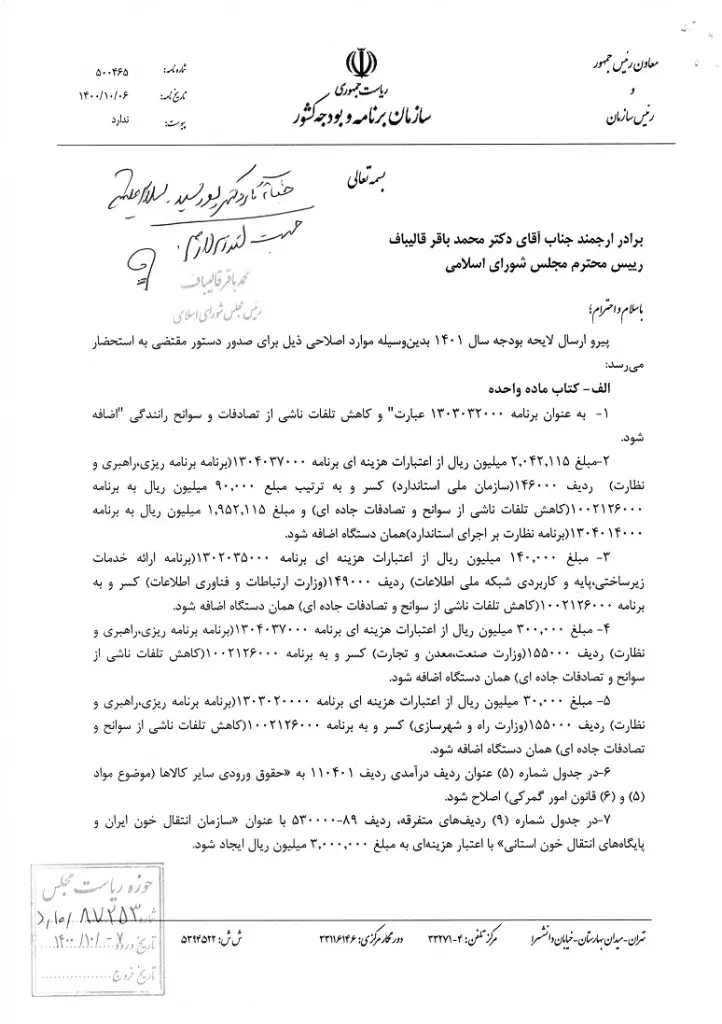 معاون رئیس جمهور
و
رئیس سازمان
ریاست جمهوری
سازمان برنامه و بودجه کشور
شماره نامه: ۵۰۰۴۶۵
تاریخ نامه: ۱۴۰۰/۱۰/۰۶
پیوست: ندارد
بسمه تعالی
جهت
محمد باقر قالیباف
رئیس مجلس شورای اسلامی
برادر ارجمند جناب آقای دکتر محمد باقر قالیباف
رییس محترم مجلس شورای اسلامی
باسلام و احترام؛
پیرو ارسال لایحه بودجه سال ۱۴۰۱ بدین‌وسیله موارد اصلاحی ذیل برای صدور دستور مقتضی به استحضار
می‌رسد:
الف- کتاب ماده واحده
۱- به عنوان برنامه ۱۳۰۳۰۳۲۰۰۰ عبارت" و کاهش تلفات ناشی از تصادفات و سوانح رانندگی "اضافه
شود.
۲-مبلغ ۲,۰۴۲,۱۱۵ میلیون ریال از اعتبارات هزینه ای برنامه ۱۳۰۴۰۳۷۰۰۰(برنامه برنامه ریزی،راهبری و
نظارت) ردیف ۱۴۶۰۰۰(سازمان ملی استاندارد) کسر و به ترتیب مبلع ۹۰,۰۰۰ میلیون ریال به برنامه
۱۰۰۲۱۲۶۰۰۰(کاهش تلفات ناشی از سوانح و تصادفات جاده ای) و مبلغ ۱,۹۵۲,۱۱۵ میلیون ریال به برنامه
۱۳۰۴۰۱۴۰۰۰(برنامه نظارت بر اجرای استاندارد)همان دستگاه اضافه شود.
۳- مبلغ ۱۴۰,۰۰۰ میلیون ریال از اعتبارات هزینه ای برنامه ۱۳۰۲۰۳۵۰۰۰(برنامه ارائه خدمات
زیرساختی،پایه و کاربردی شبکه ملی اطلاعات) ردیف ۱۴۹۰۰۰(وزارت ارتباطات و فناوری اطلاعات) کسر و به
برنامه ۱۰۰۲۱۲۶۰۰۰(کاهش تلفات ناشی از سوانح و تصادفات جاده ای) همان دستگاه اضافه شود.
۴- مبلغ ۳۰۰,۰۰۰ میلیون ریال از اعتبارات هزینه ای برنامه ۱۳۰۴۰۳۷۰۰۰(برنامه برنامه ریزی،راهبری و
نظارت) ردیف ۱۵۵۰۰۰(وزارت صنعت،معدن و تجارت) کسر و به برنامه ۱۰۰۲۱۲۶۰۰۰(کاهش تلفات ناشی از
سوانح و تصادفات جاده ای) همان دستگاه اضافه شود.
۵- مبلغ ۳۰,۰۰۰ میلیون ریال از اعتبارات هزینه ای برنامه ۱۳۰۳۰۲۰۰۰۰(برنامه برنامه ریزی،راهبری و
نظارت) ردیف ۱۵۵۰۰۰(وزارت راه و شهرسازی) کسر و به برنامه ۱۰۰۲۱۲۶۰۰۰(کاهش تلفات ناشی از سوانح و
تصادفات جاده ای) همان دستگاه اضافه شود.
۶-در جدول شماره (۵) عنوان ردیف درآمدی ردیف ۱۱۰۴۰۱ به «حقوق ورودی سایر کالاها (موضوع مواد
(۵) و (۶) قانون امور گمرکی) اصلاح شود.
۷-در جدول شماره (۹) ردیف‌های متفرقه، ردیف ۸۹-۵۳۰۰۰۰ با عنوان «سازمان انتقال خون ایران و
پایگاه‌های انتقال خون استانی» با اعتبار هزینه‌ای به مبلغ ۳,۰۰۰,۰۰۰ میلیون ریال ایجاد شود.
حوزه ریاست مجلس
شماره ۸۷۲۵۳
تاریخ ورود ۱۴۰۰/۱۰/-۷
تاریخ خروج
تهران-میدان بهارستان-خیابان دانشسرا مرکز تلفن: ۴-۳۳۲۷۱ دورنگار مرکزی: ۳۳۱۱۶۱۴۶ ش ش: ۵۳۹۴۵۲۲